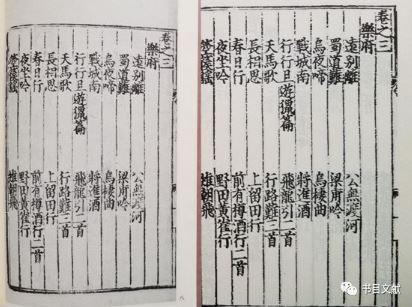 卷之三
樂府
遠別離 公無渡河
蜀道難 梁甫吟
烏夜啼 烏棲曲
戰城南 將進酒
行行且遊獵篇 飛龍引二首
天馬歌 行路難三首
長相思 上留田行
春日行 前有樽酒行二首
夜坐吟 野田黃雀行
箜篌謠 雉朝飛
卷之三
樂府
遠別離 公無渡河
蜀道難 梁甫吟
烏夜啼 烏棲曲
戰城南 將進酒
行行且遊獵篇 飛龍引二首
天馬歌 行路難三首
長相思 上留田行
春日行 前有樽酒行二首
夜坐吟 野田黃雀行
箜篌謠 雉朝飛
书目文献